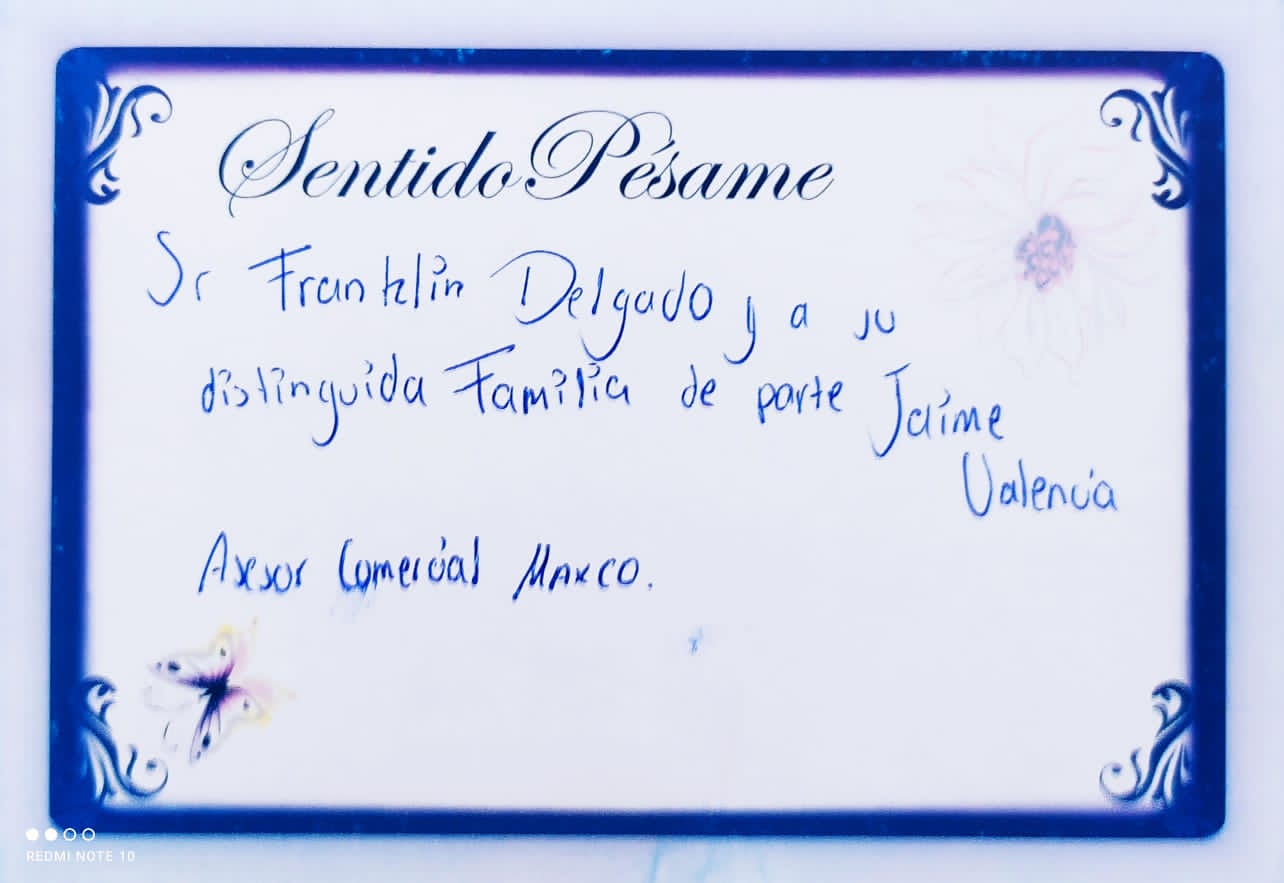 Sentido Pésame
Sr Franklin Delgado y a su
distinguida Familia de parte Jaime
Valencia
Asesor Comercial Maxco.
REDMI NOTE 10